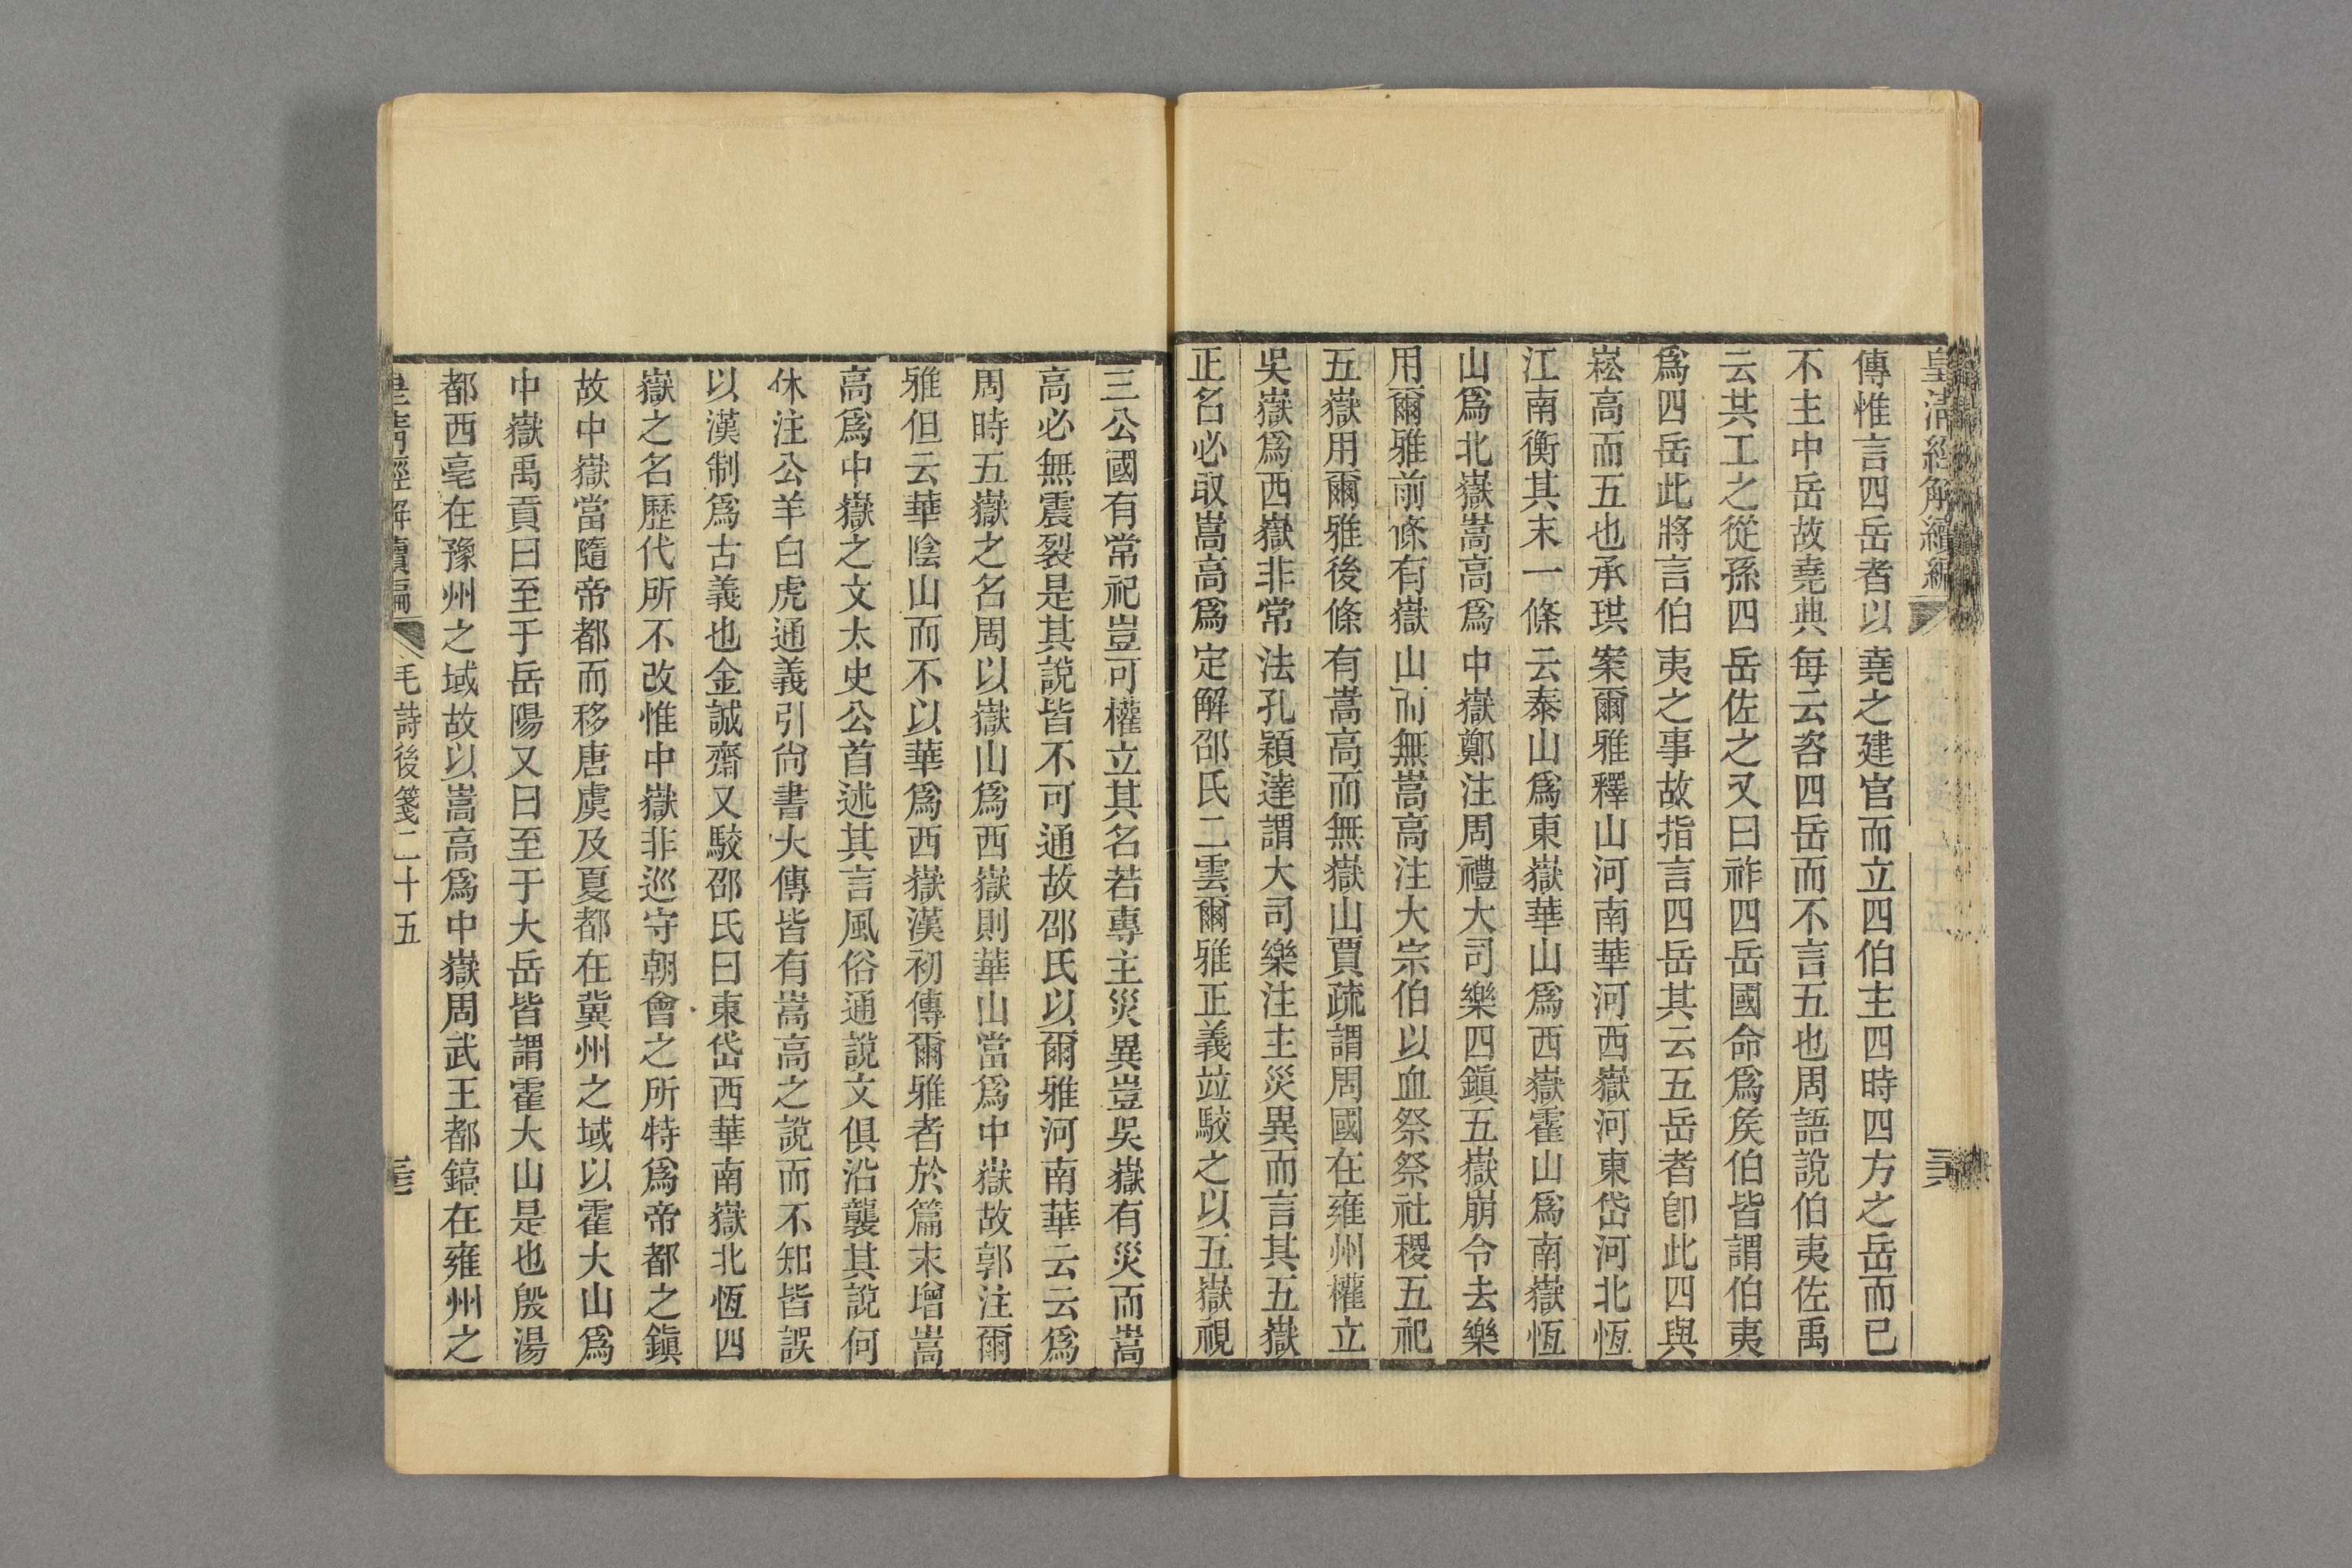 皇清經解續編
傳惟言四岳者以堯之建官而立四伯主四時四方之岳而已
不主中岳故堯典每云咨四岳而不言五也周語說伯夷佐禹
云其工之從孫四岳佐之又曰祚四岳國命爲矦伯皆謂伯夷
爲四岳此將言伯夷之事故指言四岳其云五岳者卽此四與
崧高而五也承珙案爾雅釋山河南華河西嶽河東岱河北恆
江南衡其末一條云泰山爲東嶽華山爲西嶽霍山爲南嶽恆
山爲北嶽嵩高爲中嶽鄭注周禮大司樂四鎭五嶽崩令去樂
用爾雅前條有嶽山而無嵩高注大宗伯以血祭祭社稷五祀
五嶽用爾雅後條有嵩高而無嶽山賈疏謂周國在雍州權立
吳嶽爲西嶽非常法孔穎達謂大司樂注主災異而言其五嶽
正名必取嵩高爲定解邵氏二雲爾雅正義竝駮之以五嶽視
三公國有常祀豈可權立其名若專主災異豈吳嶽有災而嵩
高必無震裂是其說皆不可通故邵氏以爾雅河南華云云爲
周時五嶽之名周以嶽山爲西嶽則華山當爲中嶽故郭注爾
雅但云華陰山而不以華爲西嶽漢初傳爾雅者於篇末增嵩
高爲中嶽之文太史公首述其言風俗通說文俱沿襲其說何
休注公羊白虎通義引尙書大傳皆有嵩高之說而不知皆誤
以漢制爲古義也金誠齋又駮邵氏曰東岱西華南嶽北恆四
嶽之名歷代所不改惟中嶽非巡守朝會之所特爲帝都之鎭
故中嶽當隨帝都而移唐虞及夏都在冀州之域以霍大山爲
中嶽禹貢曰至于岳陽又曰至于大岳皆謂霍大山是也殷湯
都西亳在豫州之域故以嵩高爲中嶽周武王都鎬在雍州之
皇清經解續編　毛詩後箋二十五